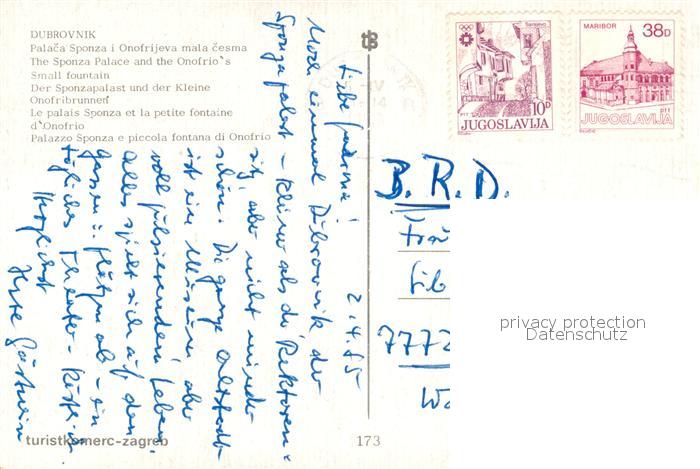 DUBROVNIK
Palača Sponza i Onofrijeva mala česma
The Sponza Palace and the Onofrio`s
Small fountain
Der Sponzapalast und der Kleine
Onofribrunnen
Le palais Sponza et la petite fontaine
d`Onofrio
Palazzo Sponza e piccola fontana di Onofrio
Sarajevo
10D
PTT
JUGOSLAVIJA
MARIBOR
38D
PTT
JUGOSLAVIJA
2.4.85
Liebe
Noch einmal Dubrovnik, der
Sponzapalast - kleiner als der Rektoren-
sitz, aber nicht minder
schön. Die ganze Altstadt
ist ein Museum aber
voll pulsierenden Lebens
alles spielt sich auf den
Gassen u. Plätzen ab - ein
tägliches Theater - köstlich
Herzlichst
Ihre
B.R.D.
7772
turistkomerc-zagreb
173
privacy protection
Datenschutz